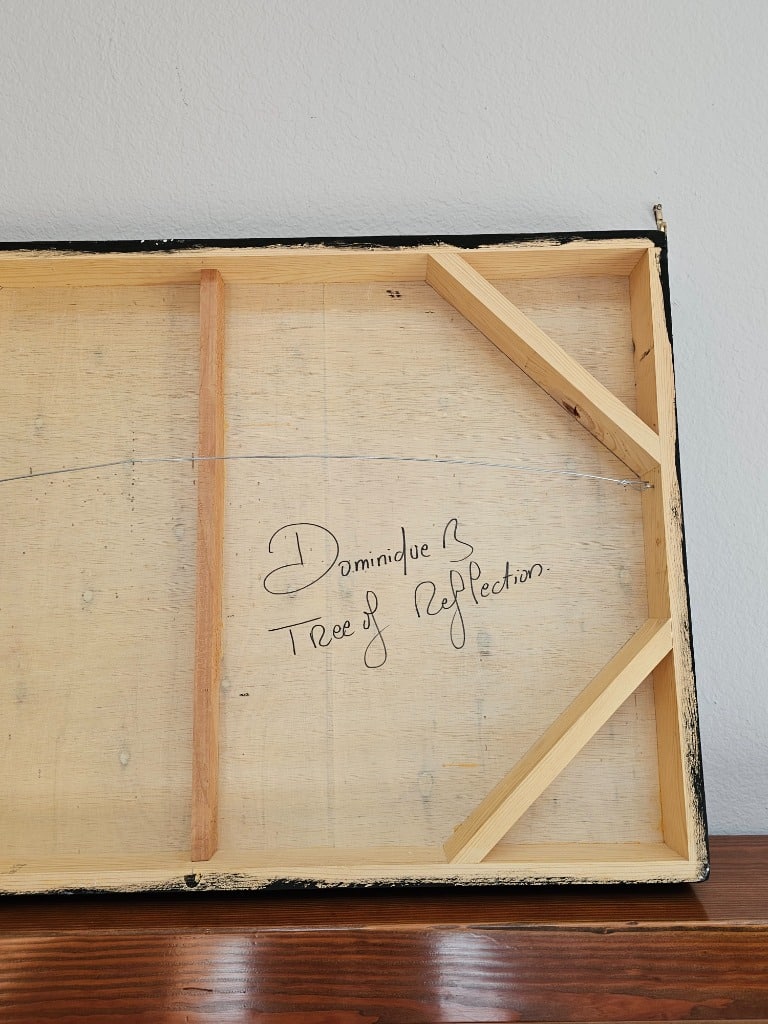 Dominique B
Tree of Reflection.